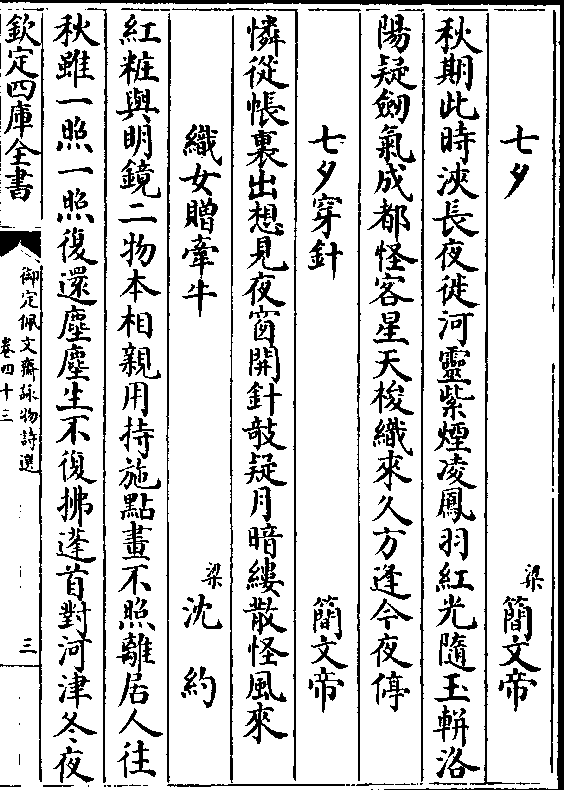 七夕　梁簡文帝
秋期此時浹長夜徙河靈紫煙凌鳳羽紅光隨玉軿洛
陽疑劒氣成都怪客星天梭織來久方逢今夜停
七夕穿針　簡文帝
憐從帳裏出想見夜窗開針敧疑月暗縷散怪風來
織女贈牽牛　梁沈約
紅粧與明鏡二物本相親用持施點畫不照離居人往
秋雖一照一照復還塵塵生不復拂蓬首對河津冬夜
欽定四庫全書
御定佩文齋詠物詩選
卷四十三
三